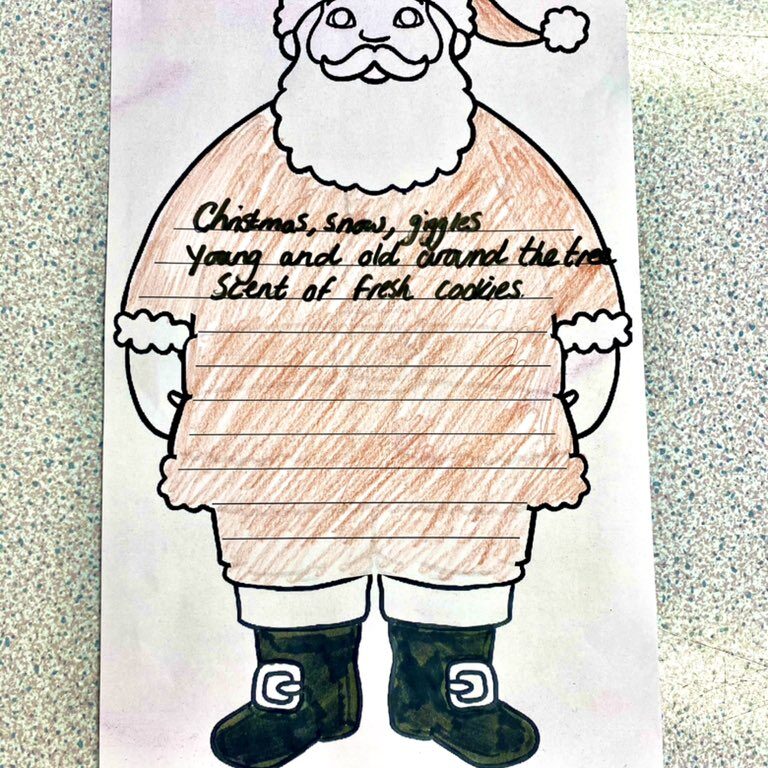 Christmas, snow, giggles
Young and old around the tree
Scent of fresh cookies.